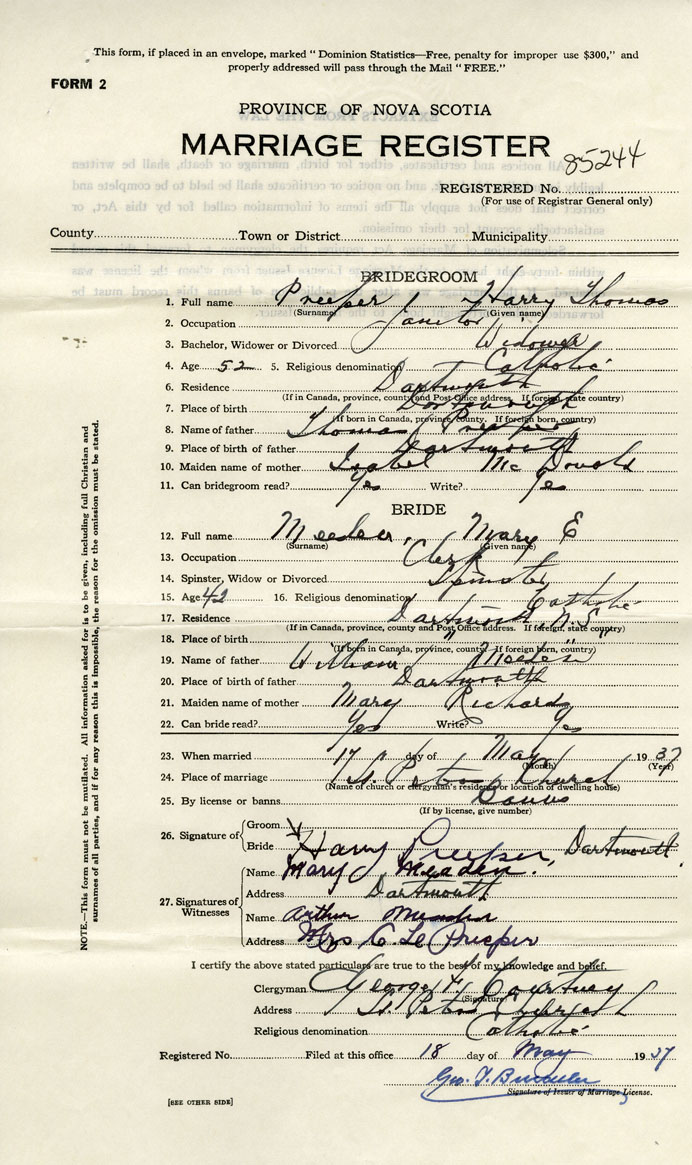 This form, if placed in an envelope, marked "Dominion Statistics—Free, penalty for improper use $300," and
properly addressed will pass through the Mail "FREE."
FORM 2
PROVINCE OF NOVA SCOTIA
MARRIAGE REGISTER
85244
REGISTERED No.
(For use of Registrar General only)
County Town or District Municipality
BRIDEGROOM
1. Full name Preeper Harry Thomas
(Surname) (Given name)
2. Occupation Janitor
3. Bachelor, Widower or Divorced Widower
4. Age 52 5. Religious denomination Catholic
6. Residence Dartmouth
(If in Canada, province, county and Post Office address. If foreign, state country)
7. Place of birth Dartmouth
(If born in Canada, province, county. If foreign born, country)
8. Name of father Thomas Preeper
9. Place of birth of father Dartmouth
10. Maiden name of mother Isabel McDonald
11. Can bridegroom read? Yes Write? Yes
BRIDE
12. Full name Meeden, Mary E
(Surname) (Given name)
13. Occupation Clerk
14. Spinster, Widow or Divorced Spinster
15. Age 42 16. Religious denomination Catholic
17. Residence Dartmouth, N.S.
(If in Canada, province, county and Post Office address. If foreign, state country)
18. Place of birth " " "
(If born in Canada, province, county. If foreign born, country)
19. Name of father William Meeden
20. Place of birth of father Dartmouth
21. Maiden name of mother Mary Richards
22. Can bride read? Yes Write? Yes
23. When married 17 day of May 1937
(Month) (Year)
24. Place of marriage St. Peters Church
(Name of church or clergyman's residence or location of dwelling house)
25. By license or banns Banns
(If by license, give number)
26. Signature of Groom
Bride Harry Preeper, Dartmouth.
27. Signatures of Witnesses
Name Mary Meaden.
Address Dartmouth
Name Arthur Meaden
Address Mrs C. Le Preeper
I certify the above stated particulars are true to the best of my knowledge and belief.
Clergyman George Courtney
(Signature)
Address St. Peters
Religious denomination Catholic
Registered No. Filed at this office 18 day of May 1937
Geo. T.
Signature of Issuer of Marriage License.
[SEE OTHER SIDE]
NOTE.—This form must not be mutilated. All information asked for is to be given, including full Christian and
surnames of all parties, and if for any reason this is impossible, the reason for the omission must be stated.